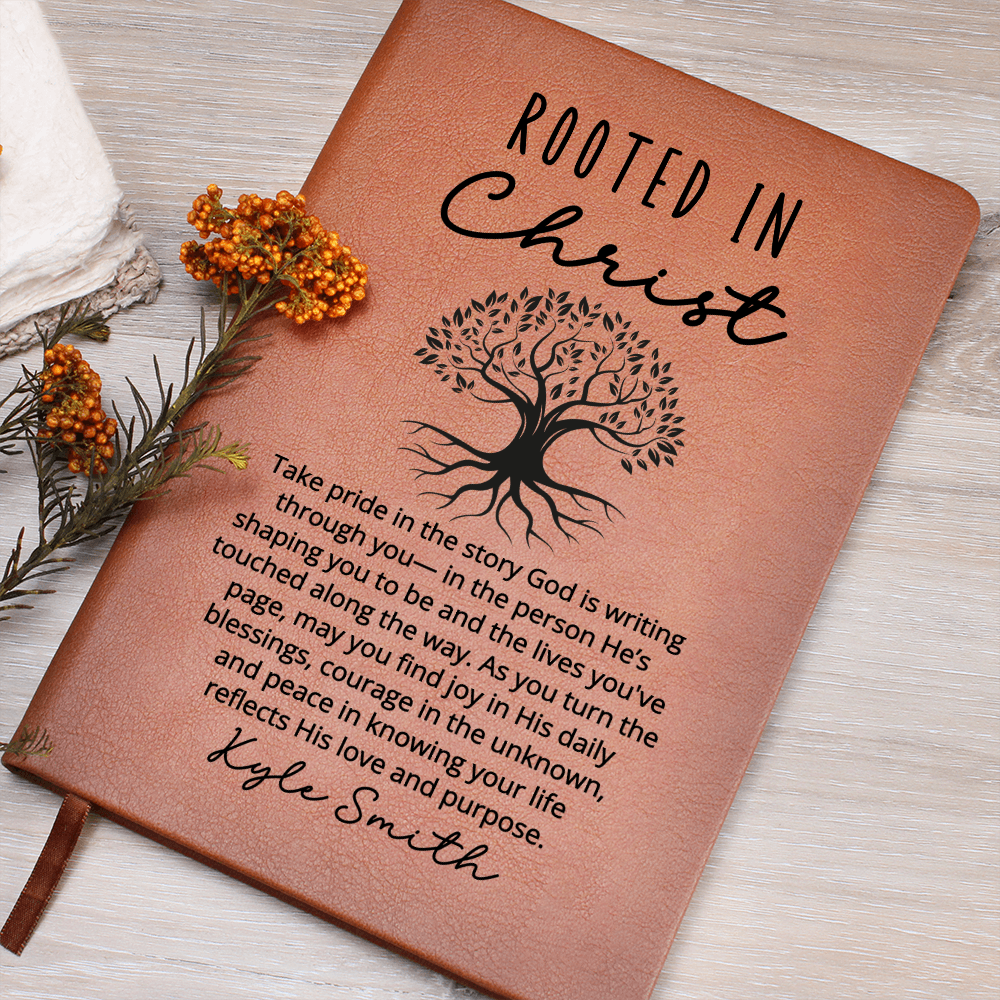 ROOTED IN
Christ
Take pride in the story God is writing
through you— in the person He's
shaping you to be and the lives you've
touched along the way. As you turn the
page, may you find joy in His daily
blessings, courage in the unknown,
and peace in knowing your life
reflects His love and purpose.
Kyle Smith